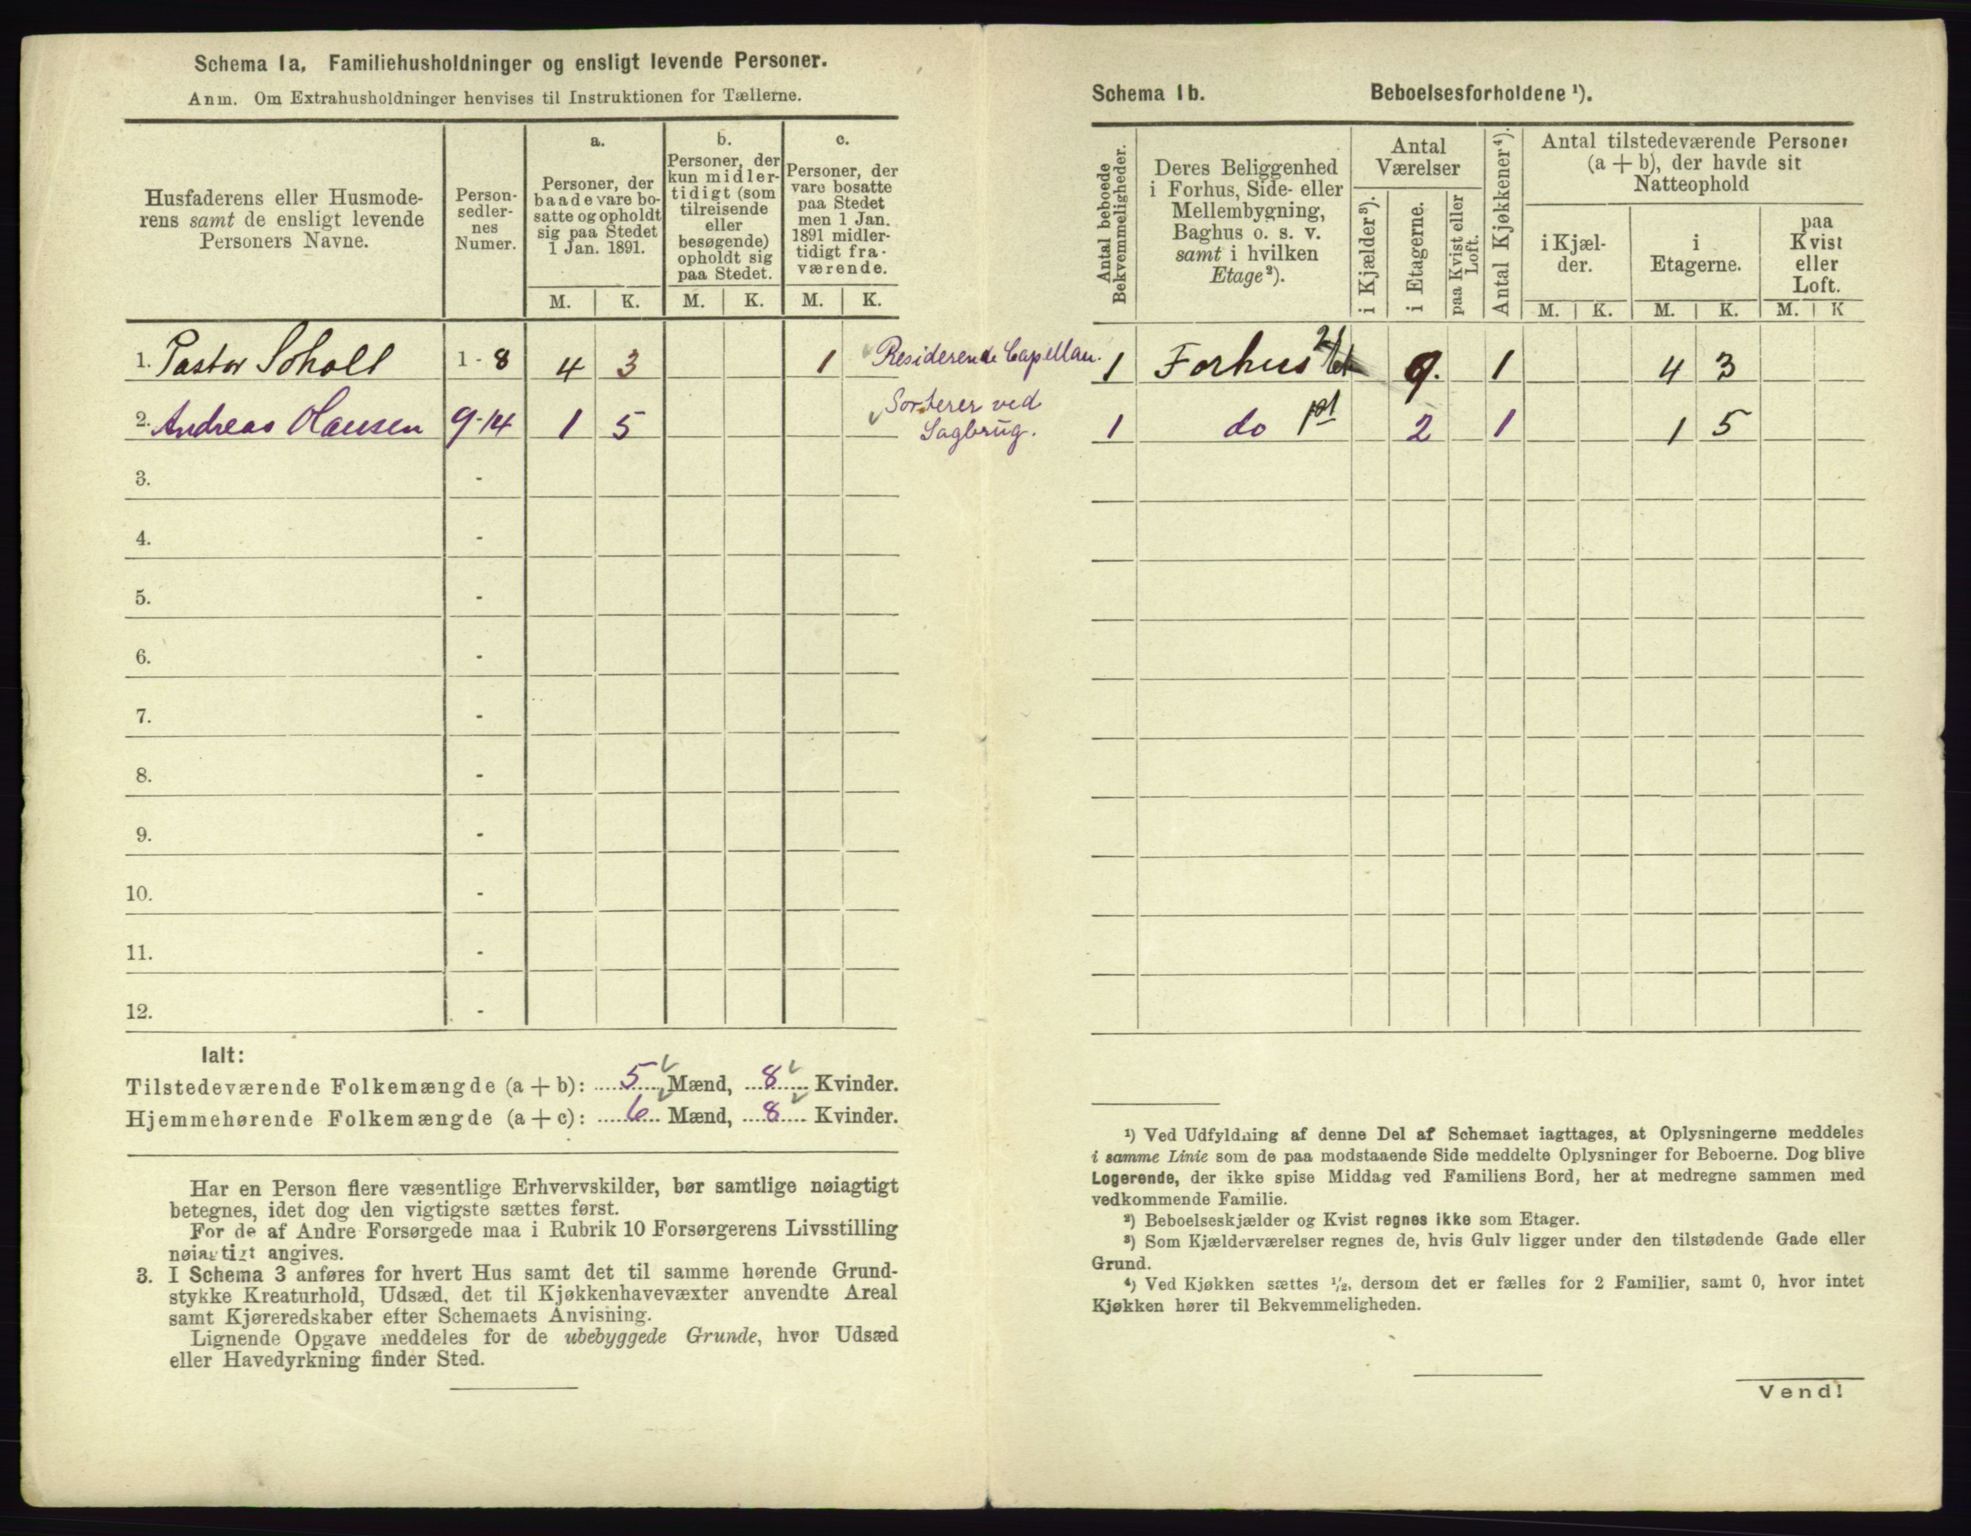 Schema 1a, Familiehusholdninger og ensligt levende Personer.
Anm. Om Extrahusholdninger henvises til Instruktionen for Tællerne.
Husfaderens eller Husmode-
rens samt de ensligt levende
Personers Navne.
Person-
sedler-
nes
Numer.
a.
Personer, der
baade vare bo-
satte og opholdt
sig paa Stedet
1 Jan. 1891.
b.
Personer, der
kun midler-
tidigt (som
tilreisende
eller
besøgende)
opholdt sig
paa Stedet.
c.
Personer, der
vare bosatte
paa Stedet
men 1 Jan.
1891 midler-
tidigt fra-
værende.
M. K. M. K. M. K.
1. Pastor Scholl 1-8 4 3 1 Residerende Capellan.
2. Andreas Hansen 9-14 1 5 Sorterer ved
Sagbrug.
3. -
4. -
5. -
6. -
7. -
8. -
9. -
10. -
11. -
12. -
Ialt:
Tilstedeværende Folkemængde (a + b): 5 Mænd, 8 Kvinder.
Hjemmehørende Folkemængde (a + c): 6 Mænd, 8 Kvinder.
Har en Person flere væsentlige Erhvervskilder, bør samtlige nøiagtigt
betegnes, idet dog den vigtigste sættes først.
For de af Andre Forsørgede maa i Rubrik 10 Forsørgerens Livsstilling
nøiagtigt angives.
3. I Schema 3 anføres for hvert Hus samt det til samme hørende Grund-
stykke Kreaturhold, Udsæd, det til Kjøkkenhavevæxter anvendte Areal
samt Kjøreredskaber efter Schemaets Anvisning.
Lignende Opgave meddeles for de ubebyggede Grunde, hvor Udsæd
eller Havedyrkning finder Sted.
Schema 1b. Beboelsesforholdene ¹).
Antal beboede
Bekvemmeligheder.
Deres Beliggenhed
i Forhus, Side- eller
Mellembygning,
Baghus o. s. v.
samt i hvilken
Etage²).
Antal
Værelser
i Kjælder³).
i Etagerne.
paa Kvist eller
Loft.
Antal Kjøkkener⁴).
Antal tilstedeværende Personer
(a + b), der havde sit
Natteophold
i Kjæl-
der.
i
Etagerne.
paa
Kvist
eller
Loft.
M. K. M. K. M. K
1 Forhus 2 Et 9. 1 4 3
1 do 1st 2 1 1 5
¹) Ved Udfyldning af denne Del af Schemaet iagttages, at Oplysningerne meddeles
i samme Linie som de paa modstaaende Side meddelte Oplysninger for Beboerne. Dog blive
Logerende, der ikke spise Middag ved Familiens Bord, her at medregne sammen med
vedkommende Familie.
²) Beboelseskjælder og Kvist regnes ikke som Etager.
³) Som Kjælderværelser regnes de, hvis Gulv ligger under den tilstødende Gade eller
Grund.
⁴) Ved Kjøkken sættes ½, dersom det er fælles for 2 Familier, samt 0, hvor intet
Kjøkken hører til Bekvemmeligheden.
Vend!